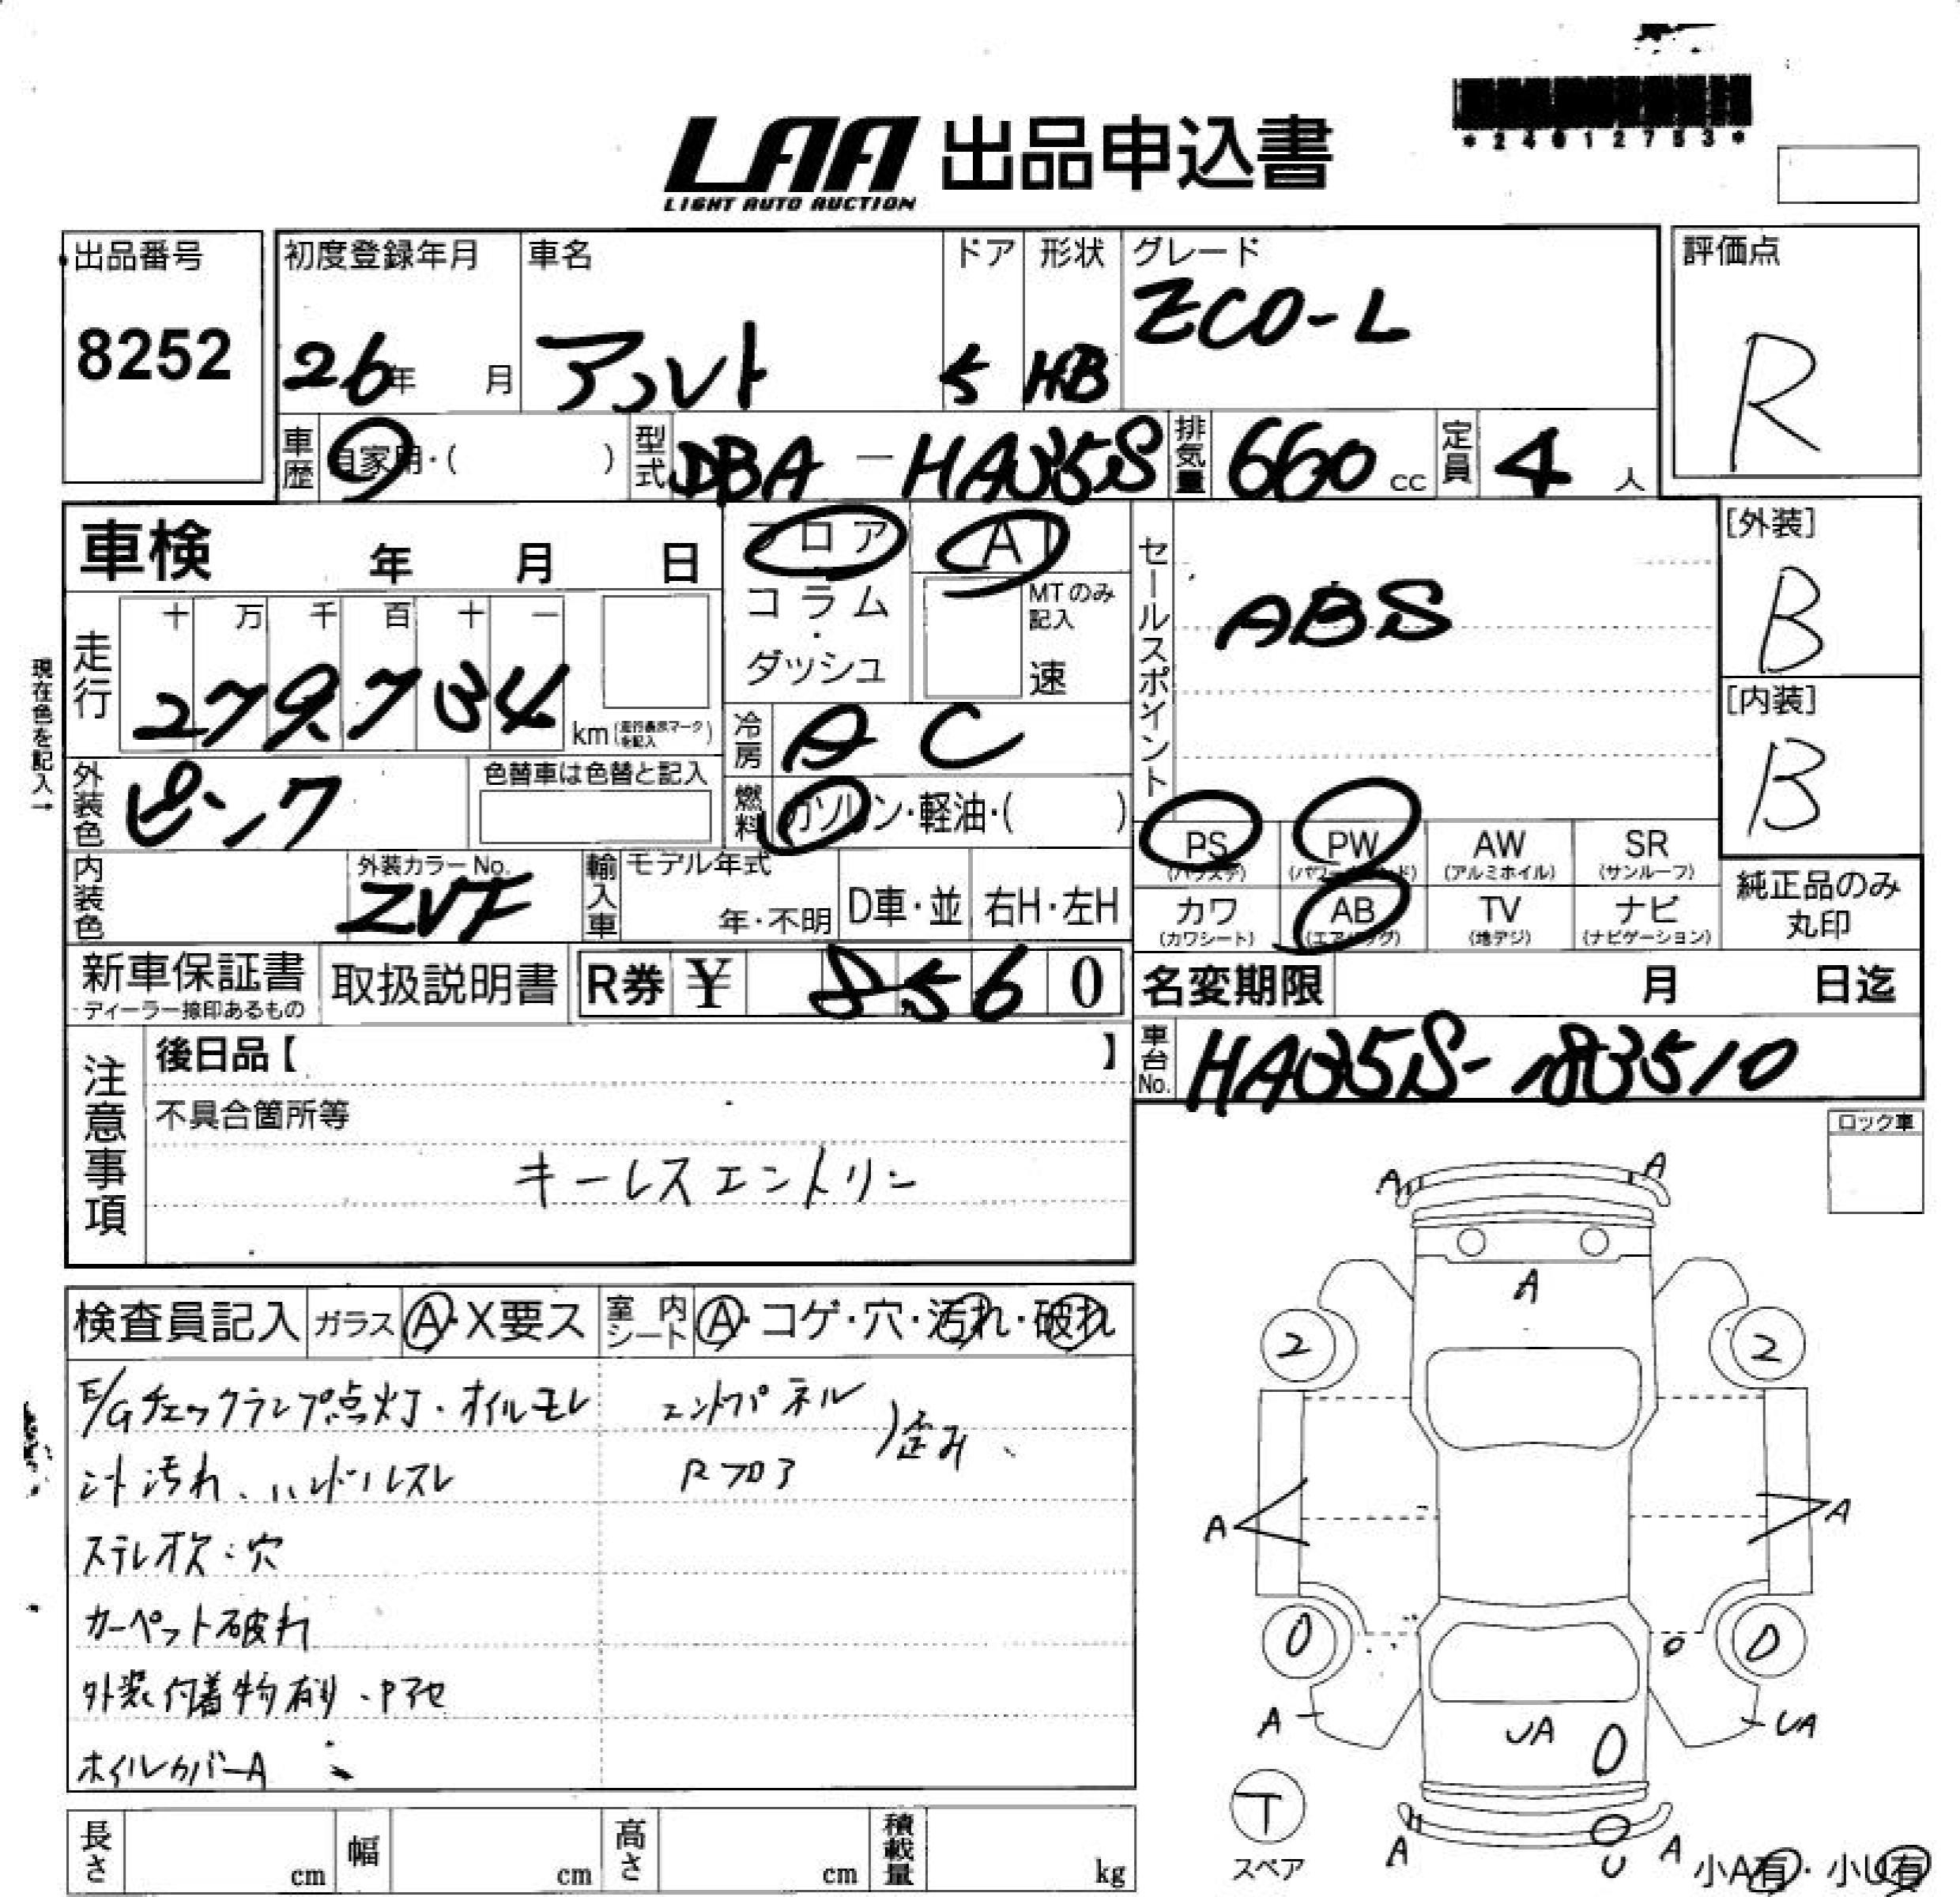 *24012753*
LAA 出品申込書
LIGHT AUTO AUCTION
出品番号
8252
初度登録年月
26年 月
車名
アルト
ドア
5
形状
HB
グレード
ECO-L
評価点
R
車歴
自家用・( )
型式
DBA-HA35S
排気量
660 cc
定員
4 人
車検 年 月 日
フロア
コラム
・
ダッシュ
AT
MTのみ記入
速
セールスポイント
ABS
[外装]
B
[内装]
B
現在色を記入→
走行
十 万 千 百 十 一
279734
km(走行表示マークを記入)
冷房
AC
外装色
ピンク
色替車は色替と記入
燃料
ガソリン・軽油・( )
PS
(パワステ)
PW
(パワーウィンド)
AW
(アルミホイル)
SR
(サンルーフ)
カワ
(カワシート)
AB
(エアバッグ)
TV
(地デジ)
ナビ
(ナビゲーション)
純正品のみ
丸印
内装色
外装カラーNo.
ZVF
輸入車
モデル年式
年・不明
D車・並
右H・左H
新車保証書
ディーラー捺印あるもの
取扱説明書
R券 ¥ 8560
名変期限 月 日迄
車台No.
HA35S-183510
注意事項
後日品【 】
不具合箇所等
キーレスエントリー
ロック車
検査員記入
ガラス
A・X要ス
室内シート
A・コゲ・穴・汚れ・破れ
E/Gチェックランプ点灯・オイルモレ
シート汚れ、ハンドルスレ
ステレオ欠・穴
カーペット破れ
外装付着物有り・
ホイルカバーA
エンドパネル
Rフロア
)歪み、
A A
A
2 2
A A
0 0
A UA
UA
T
スペア
A U A
小A有・小U有
長さ cm
幅 cm
高さ cm
積載量 kg